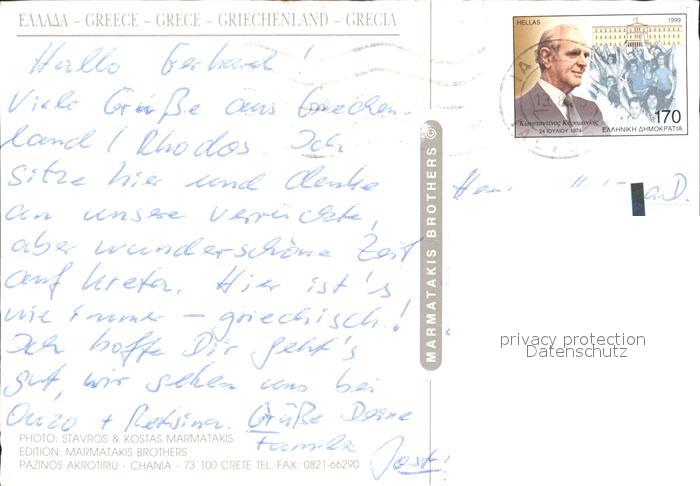 ΕΛΛΑΔΑ – GREECE – GRECE – GRIECHENLAND – GRECIA
Hallo Gerhard!
Viele Grüße aus Griechen-
land / Rhodos. Ich
sitze hier und denke
an unsere verrückte,
aber wunderschöne Zeit
auf Kreta. Hier ist's
wie immer – griechisch!
Ich hoffe Dir geht's
gut, wir sehen uns bei
Ouzo + Retsina. Grüße Deine
Familie
Jost!
PHOTO: STAVROS & KOSTAS MARMATAKIS
EDITION: MARMATAKIS BROTHERS
PAZINOS AKROTIRIU - CHANIA - 73 100 CRETE TEL.-FAX: 0821-66290
MARMATAKIS BROTHERS ©
HELLAS 1999
170
Κωνσταντίνος Καραμανλής
24 ΙΟΥΛΙΟΥ 1974 ΕΛΛΗΝΙΚΗ ΔΗΜΟΚΡΑΤΙΑ
a.D.
privacy protection
Datenschutz